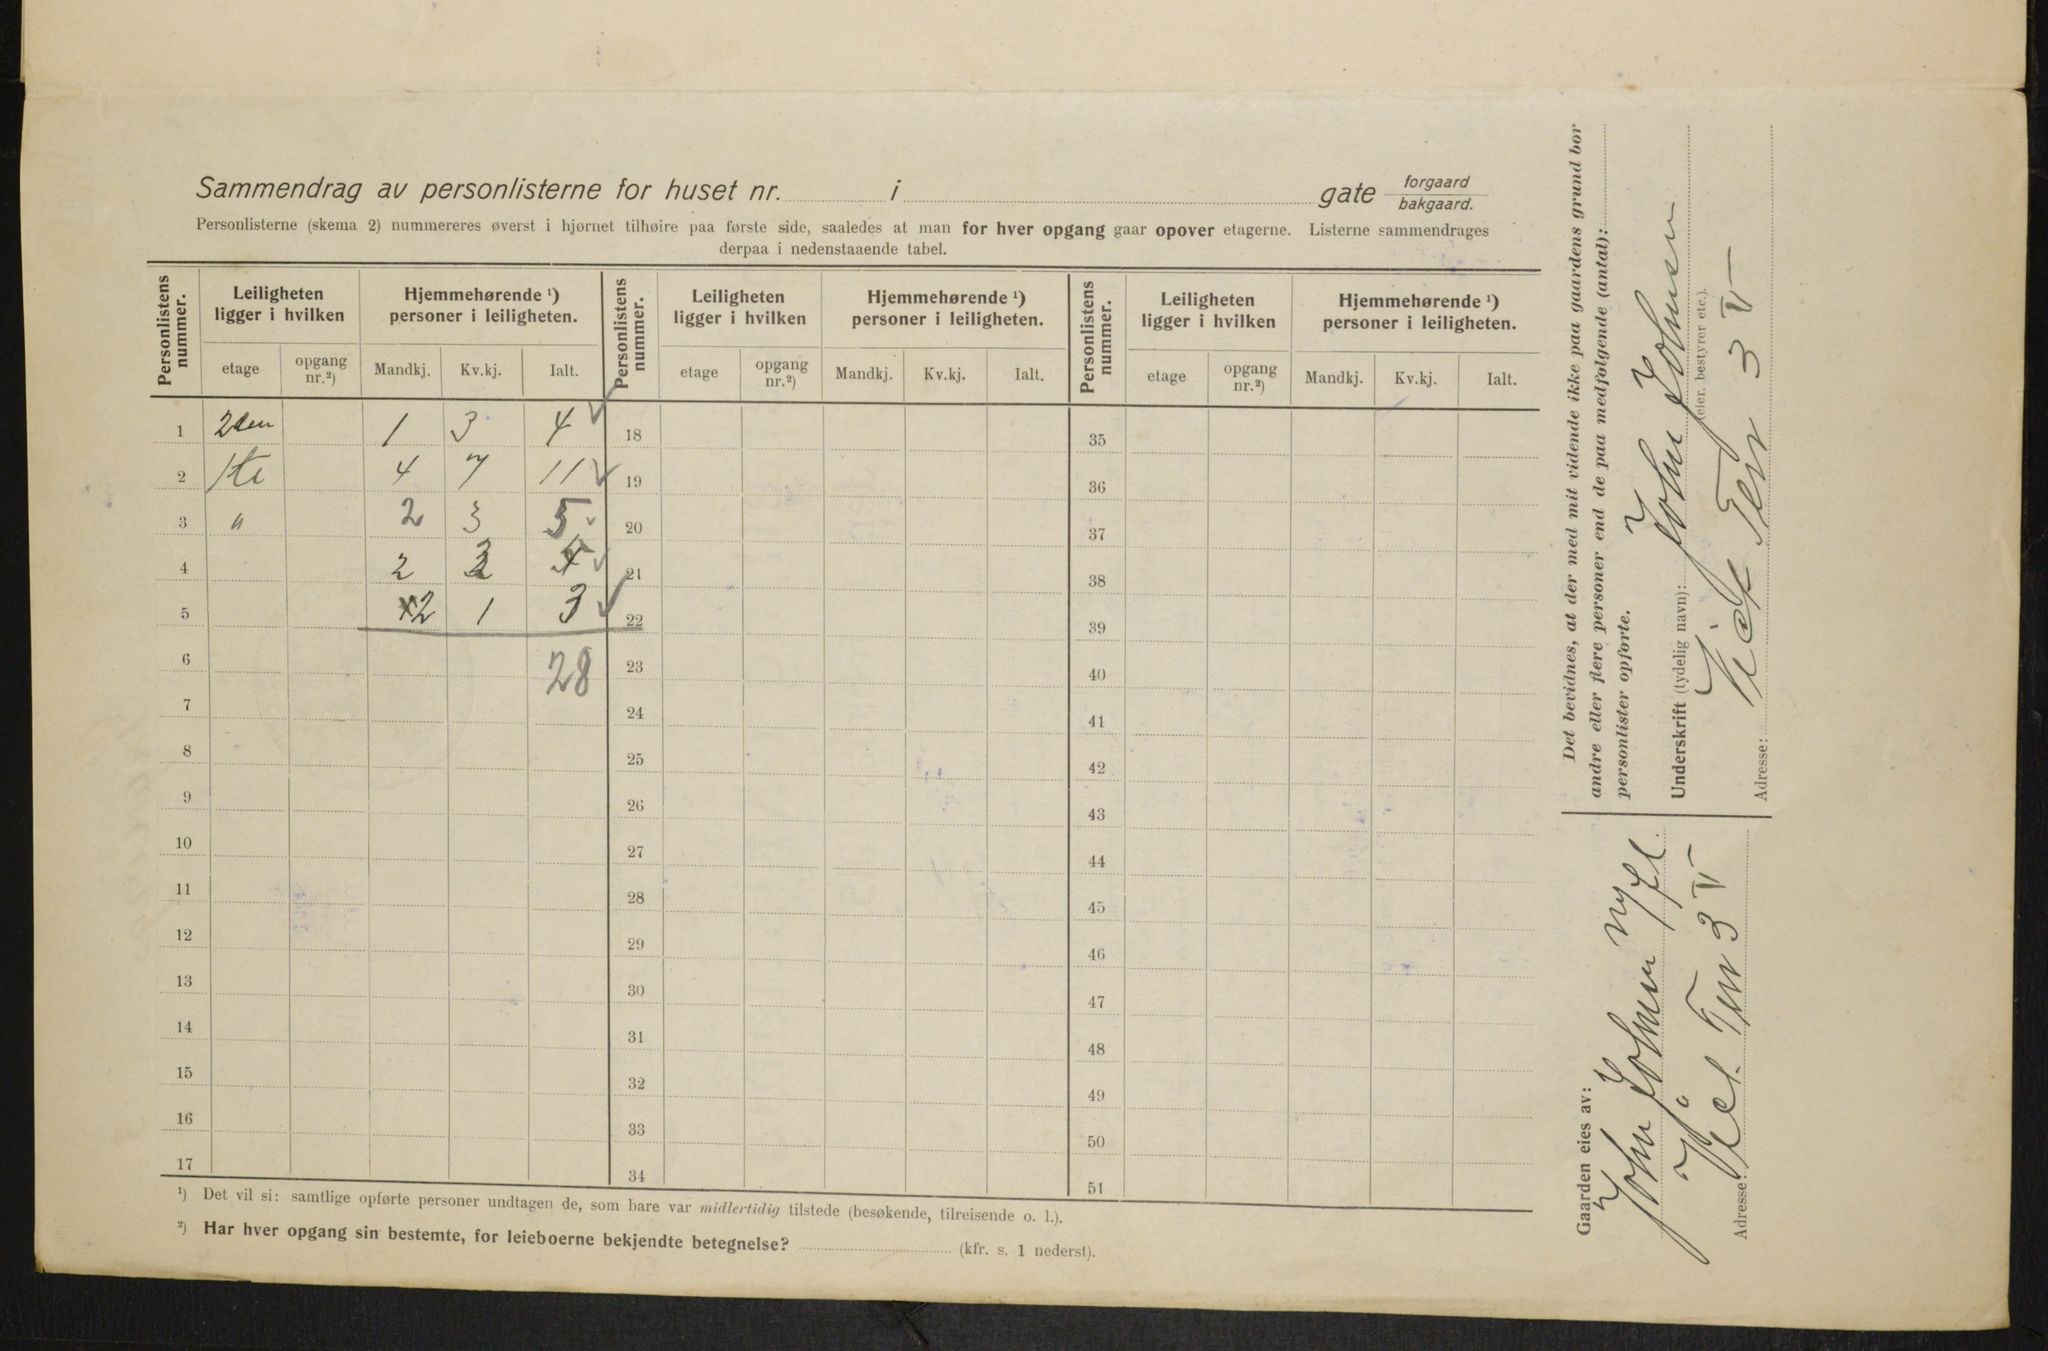 Sammendrag av personlisterne for huset nr. i gate forgaard bakgaard.
Personlisterne (skema 2) nummereres øverst i hjørnet tilhøire paa første side, saaledes at man for hver opgang gaar opover etagerne. Listerne sammendrages
derpaa i nedenstaaende tabel.
Personlistens nummer. Leiligheten ligger i hvilken Hjemmehørende ¹) personer i leiligheten. Personlistens nummer. Leiligheten ligger i hvilken Hjemmehørende ¹) personer i leiligheten. Personlistens nummer. Leiligheten ligger i hvilken Hjemmehørende ¹) personer i leiligheten.
etage opgang nr.²) Mandkj. Kv.kj. Ialt. etage opgang nr.²) Mandkj. Kv.kj. Ialt. etage opgang nr.²) Mandkj. Kv.kj. Ialt.
1 2den 1 3 4 18 35
2 1ste 4 7 11 19 36
3 " 2 3 5 20 37
4 2 3 5 21 38
5 2 1 3 22 39
6 28 23 40
7 24 41
8 25 42
9 26 43
10 27 44
11 28 45
12 29 46
13 30 47
14 31 48
15 32 49
16 33 50
17 34 51
¹) Det vil si: samtlige opførte personer undtagen de, som bare var midlertidig tilstede (besøkende, tilreisende o. l.).
²) Har hver opgang sin bestemte, for leieboerne bekjendte betegnelse? (kfr. s. 1 nederst).
Det bevidnes, at der med mit vidende ikke paa gaardens grund bor
andre eller flere personer end de paa medfølgende (antal):
personlister opførte.
Underskrift (tydelig navn): John Johnsen
(eier, bestyrer etc.).
Adresse: Vict Terr 3 V
Gaarden eies av:
John Johnsen
Adresse: Terr 3 V